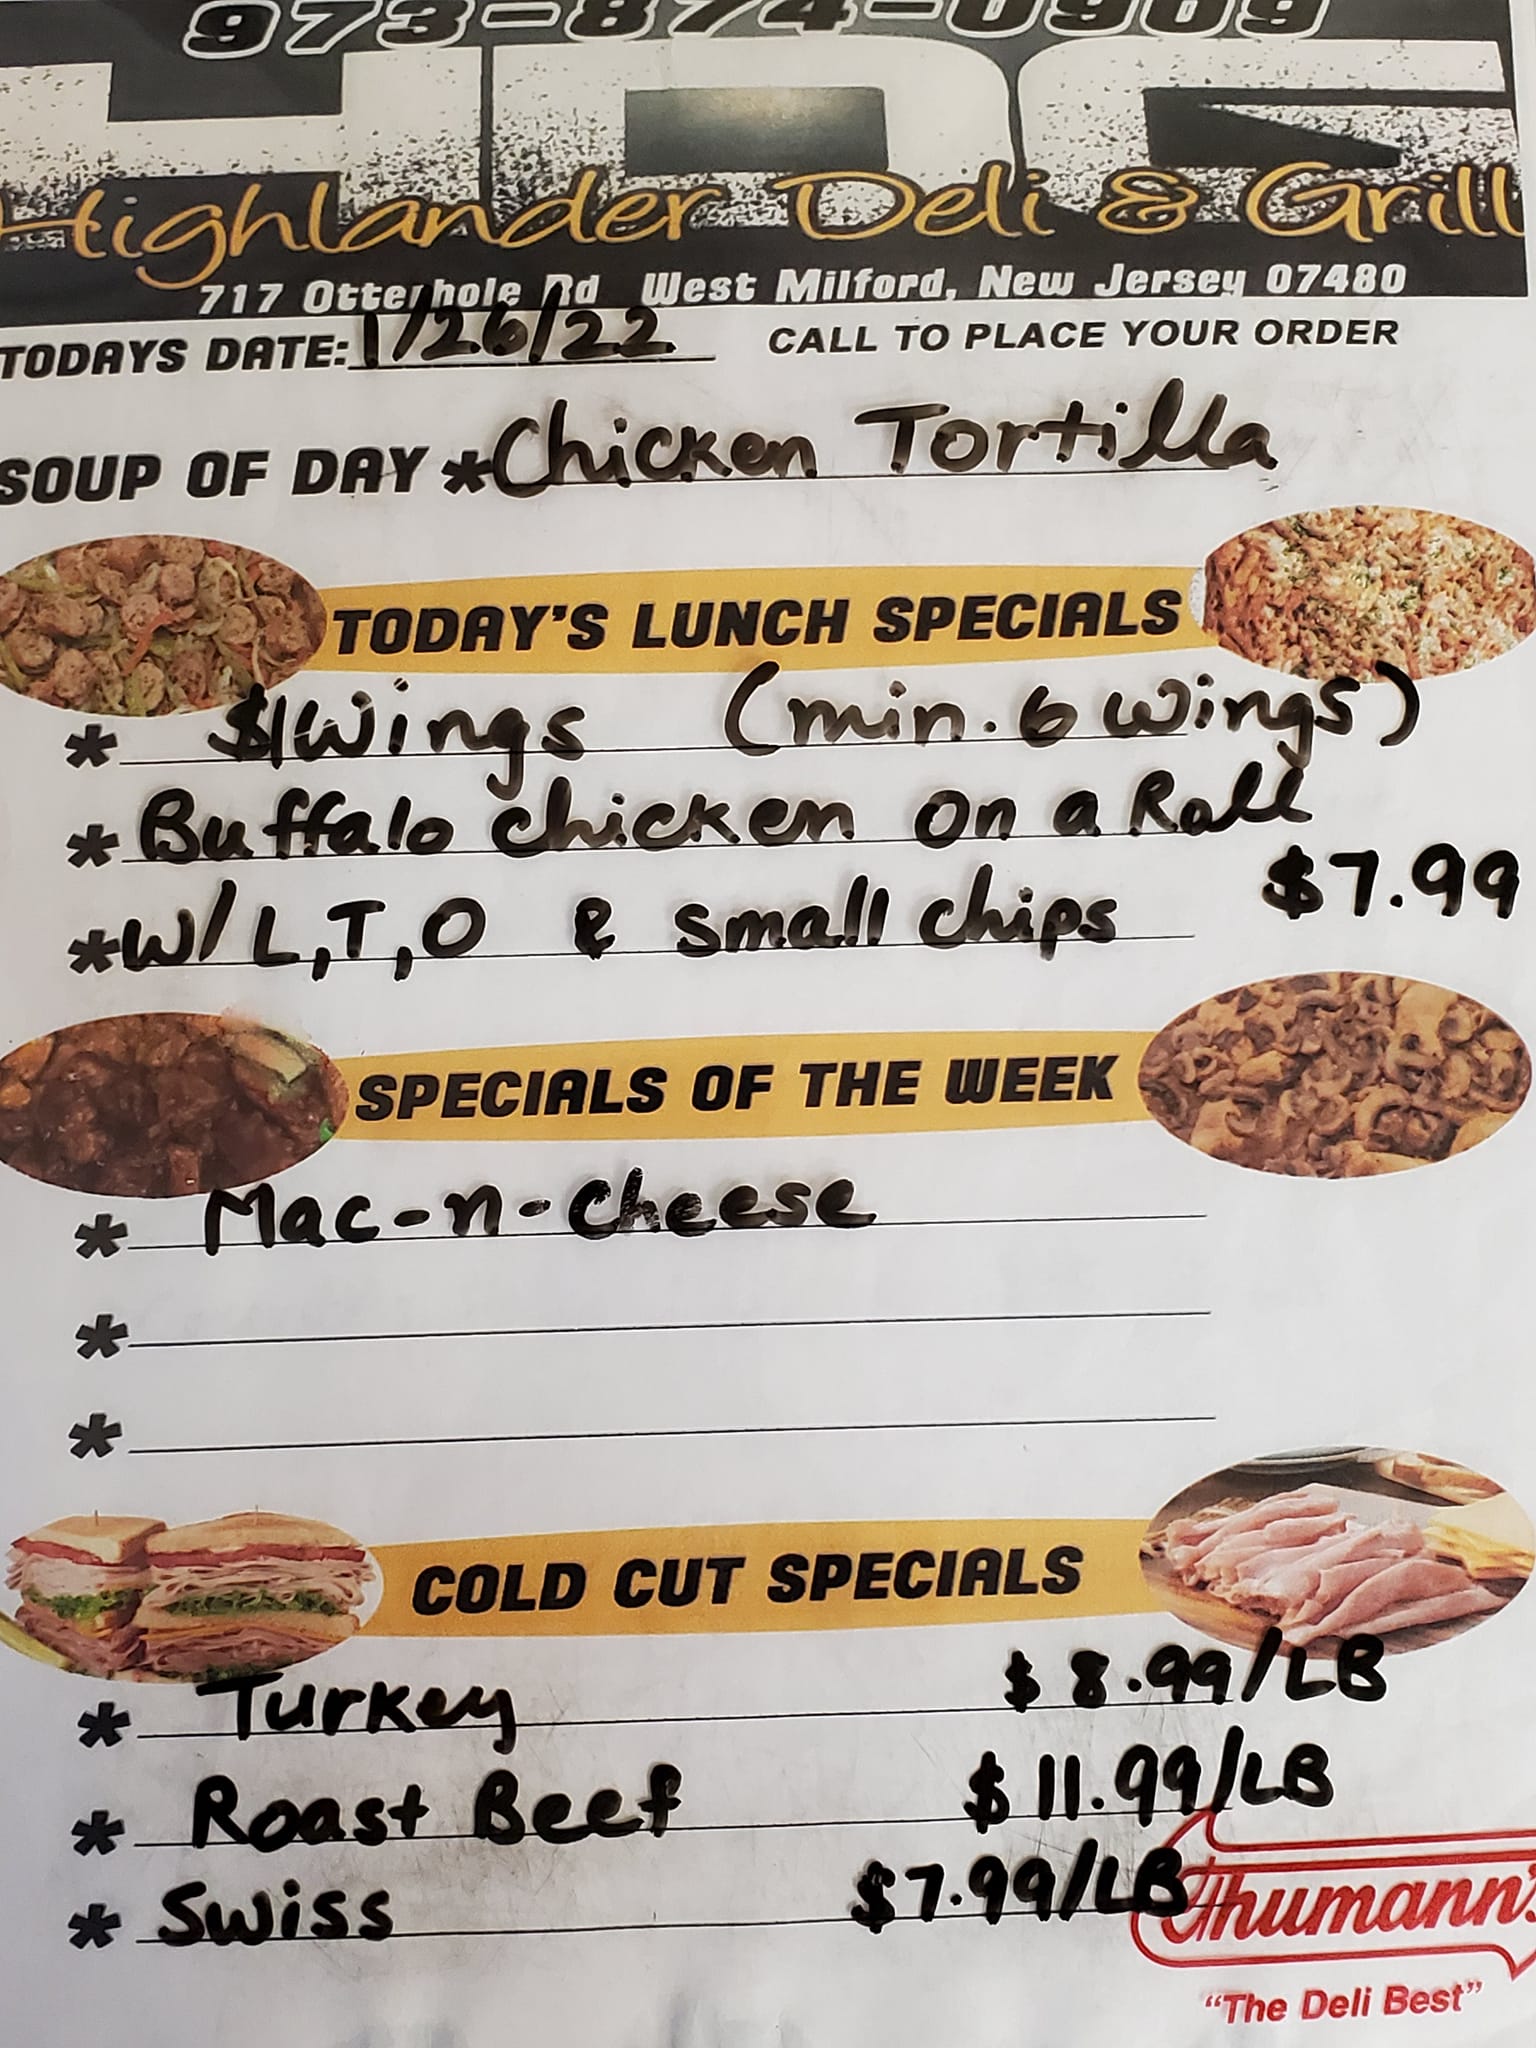 973-874-0909
HDG
Highlander Deli & Grill
717 Otterhole Rd West Milford, New Jersey 07480
TODAYS DATE: 1/26/22 CALL TO PLACE YOUR ORDER
SOUP OF DAY * Chicken Tortilla
TODAY'S LUNCH SPECIALS
* $1 Wings (min. 6 wings)
* Buffalo chicken on a Roll
* W/ L, T, O & small chips $7.99
SPECIALS OF THE WEEK
* Mac-n-Cheese
*
*
COLD CUT SPECIALS
* Turkey $8.99/LB
* Roast Beef $11.99/LB
* Swiss $7.99/LB
Thumann's
"The Deli Best"